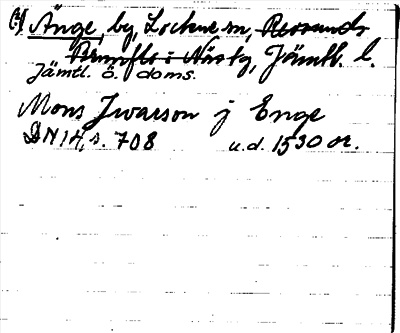 (?) Änge, by, Lockne sn, Revsunds
Brunflo i Näs tg, Jämtl. l.
Jämtl. ö. doms.
Mons Jwarson j Enge
DN 14, s. 708 u.d. 1530 or.